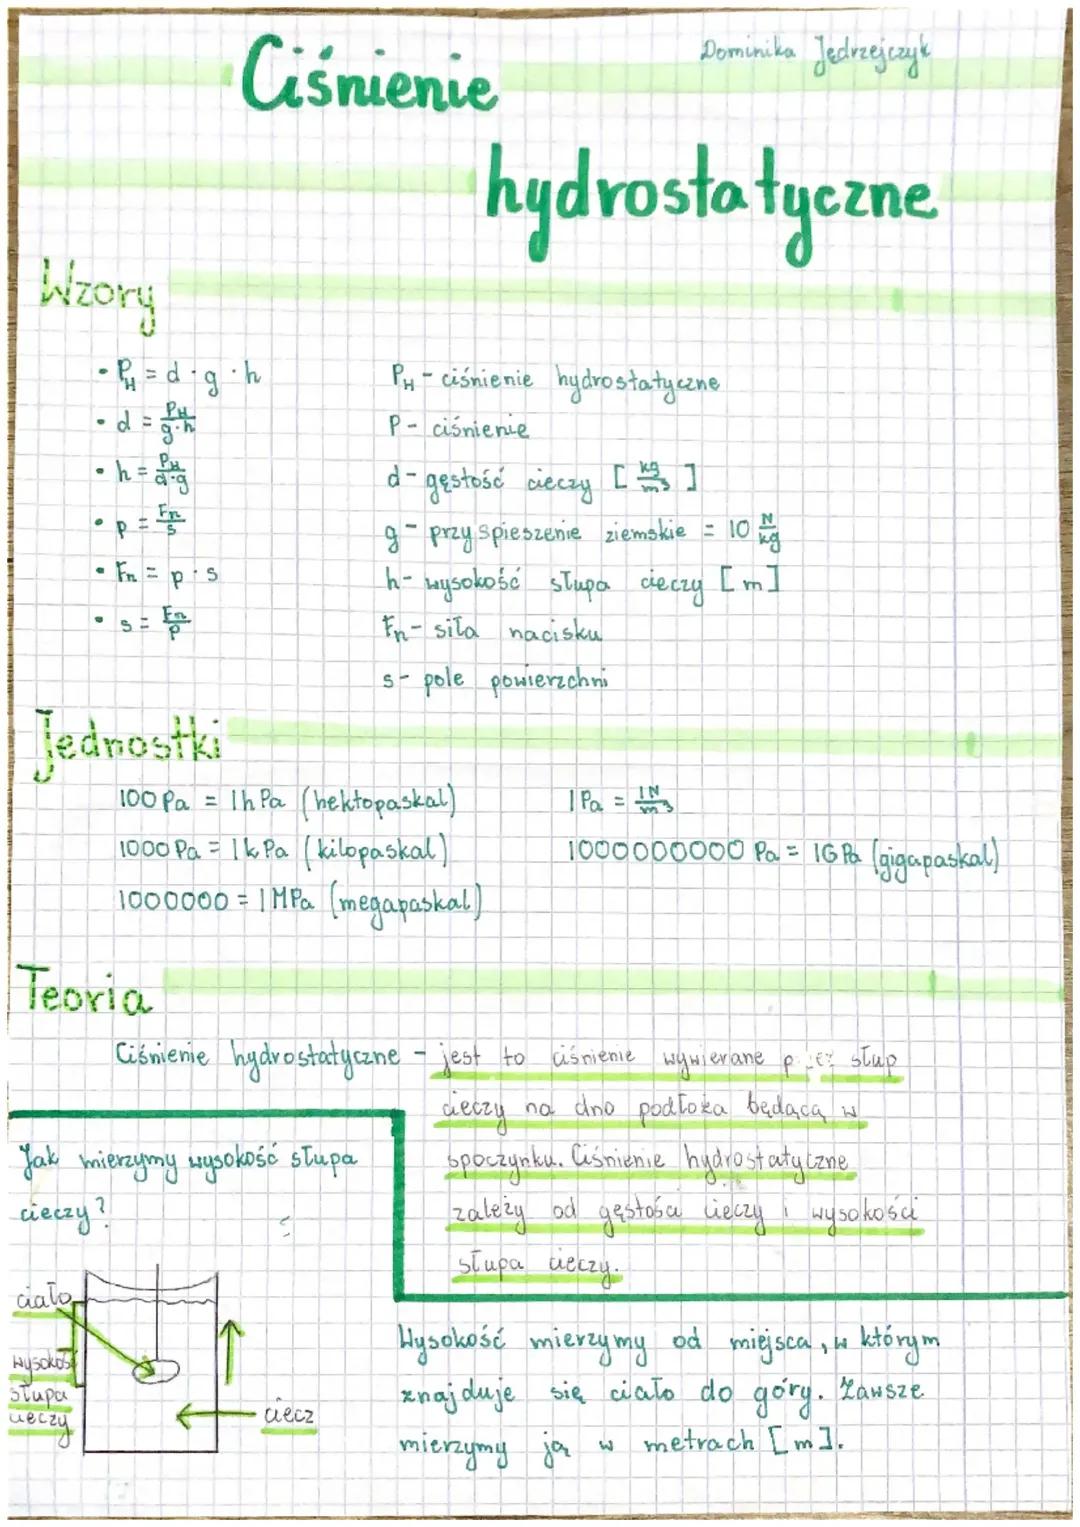 Dominika Jędrzejczyk
Ciśnienie
hydrostatyczne
Wzory
• P_H = d · g · h
• d = P_H/g·h
• h = P_H/d·g
• p = Fn/s
• Fn = p · s
• s = Fn/p
P_H - ciśnienie hydrostatyczne
P - ciśnienie
d - gęstość cieczy [kg/m³]
g - przyspieszenie ziemskie = 10 N/kg
h - wysokość słupa cieczy [m]
Fn - siła nacisku
s - pole powierzchni
Jednostki
100 Pa = 1 hPa (hektopaskal)
1000 Pa = 1 kPa (kilopaskal)
1000000 = 1 MPa (megapaskal)
1 Pa = 1N/m³
1000000000 Pa = 1 GPa (gigapaskal)
Teoria
Ciśnienie hydrostatyczne - jest to ciśnienie wywierane przez słup
cieczy na dno podłoża będącą w
spoczynku. Ciśnienie hydrostatyczne
zależy od gęstości cieczy i wysokości
słupa cieczy.
Jak mierzymy wysokość słupa
cieczy?
ciało
wysokość
słupa
cieczy
ciecz
Wysokość mierzymy od miejsca, w którym
znajduje się ciało do góry. Zawsze
mierzymy ją w metrach [m].